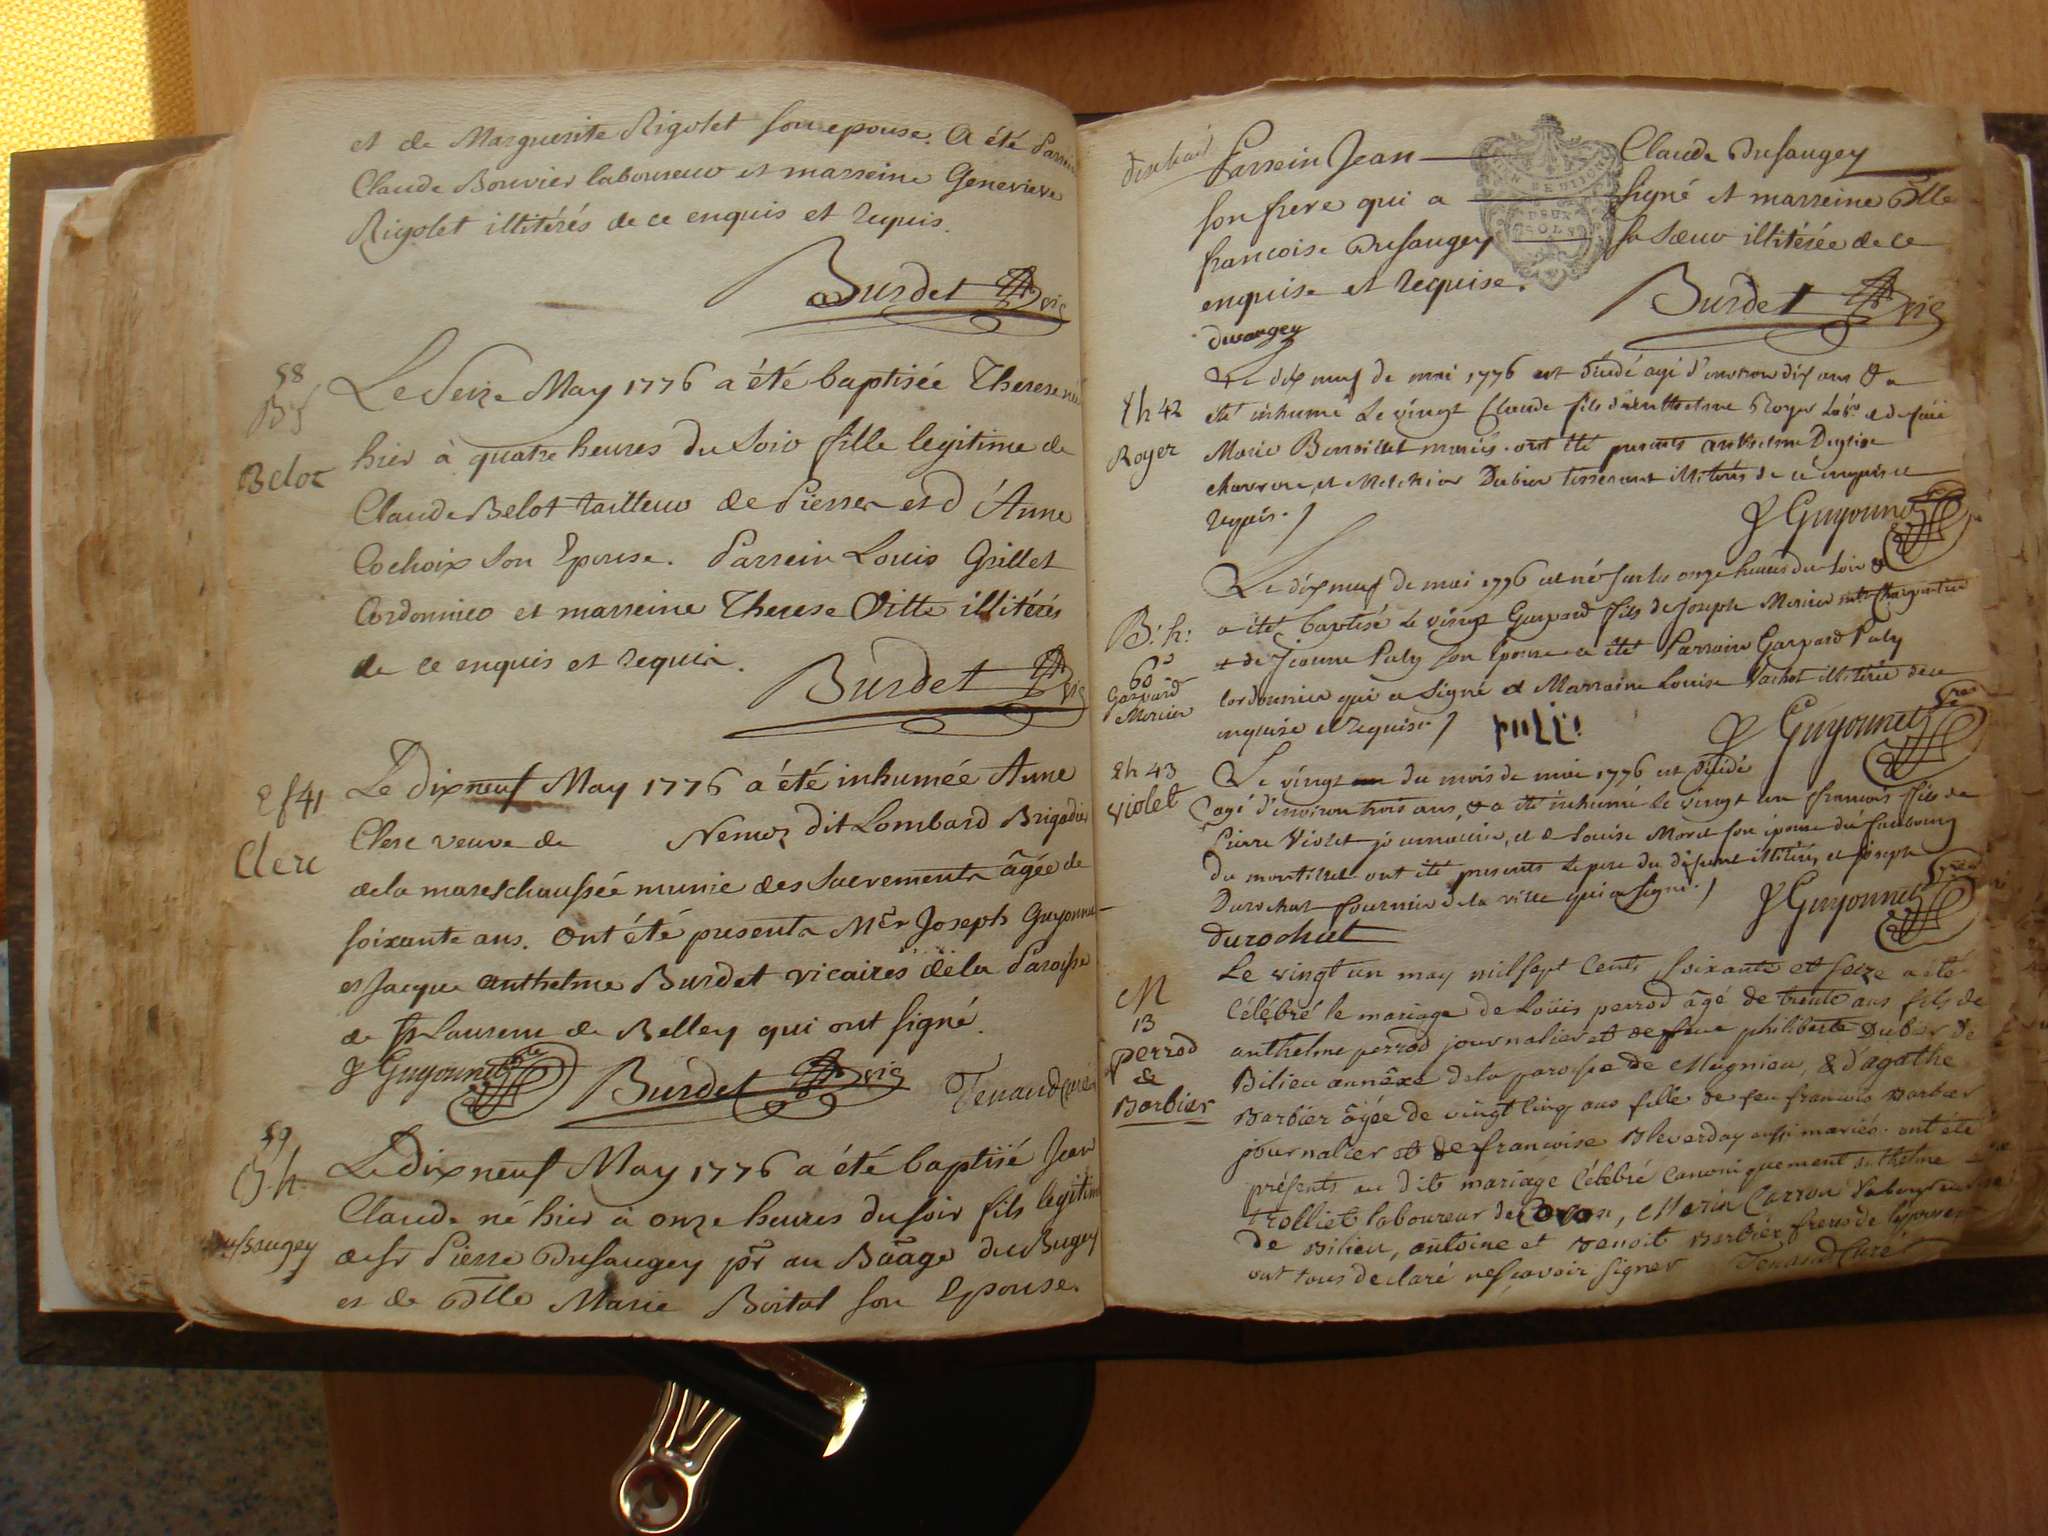 et de Marguerite Rigolet son epouse. A été Parrein
Claude Bouvier laboureur et marreine Genevieve
Rigolet illitérés de ce enquis et requis.
Burdet vic
58
Bf
Belot
Le Seize May 1776 a été baptisée Therese née
hier à quatre heures du Soir fille legitime de
Claude Belot tailleur de Pierres et d'Anne
Cochoix son Epouse. Parrein Louis Grillet
Cordonnier et marreine Therese Vitte illitérés
de ce enquis et requis.
Burdet vic
Sf 41
Clerc
Le Dix neuf May 1776 a été inhumée Anne
Clerc veuve de Nemoz dit Lombard Brigadier
de la mareschaussée munie des Sacrements âgée de
soixante ans. Ont été presents Mrs Joseph Guyonnet
et Jacque Anthelme Burdet vicaires de la Paroisse
de St Laurent de Belley qui ont signé.
J Guyonnet vic
Burdet vic
Tenand curé
59
B.h.
Dusaugey
Le Dix neuf May 1776 a été baptisé Jean
Claude né hier à onze heures du soir fils legitime
de Sr Pierre Dusaugey pr au Baage du Bugey
et de Dlle Marie Boital son Epouse.
Parrein Jean Claude Dusaugey
son frere qui a signé et marreine Dlle
francoise Dusaugey sa Sœur illitérée de ce
enquise et requise.
DEUX SOLS
Burdet vic
Dusaugey
Sh 42
Royer
Le dix neuf de mai 1776 est décédé agé d'environ dix ans & a
été inhumé le vingt Claude fils d'anthelme Royer labr. et de feüe
Marie mariés. ont été presents anthelme
et Melchior Dubier tisserant illitérés de ce enquis et
requis.
J Guyonnet
B: h:
60
Gaspard
Mercier
Le dix neuf de mai 1776 est né sur les onze heures du soir &
a été baptisé le vingt Gaspard fils de Joseph Mercier Charpentier
et de Jeanne Puly son Epouse a été Parrain Gaspard Puly
cordonnier qui a signé et Marraine Louise Vachot illitérée de ce
enquise et requise.
J Guyonnet vic
Sh 43
Violet
Le vingt du mois de mai 1776 est décédé
agé d'environ trois ans, & a été inhumé le vingt un françois fils de
Pierre Violet journalier, et de Louise Moret son épouse du faubourg
du montillet ont été presents le pere du défunt illitéré, et joseph
Durochat fournier de la ville qui a signé.
J Guyonnet vic
Durochat
M
13
perrod
&
Barbier
Le vingt un may mil sept cents soixante et seize a été
Célébré le mariage de Loüis perrod âgé de trente ans fils de
anthelme perrod journalier et de feue philiberte Dubier de
Bilieu annêxe de la paroisse de Magnieu, & d'agathe
Barbier âgée de vingt cinq ans fille de feu francois Barbier
journalier et de francoise Bleverday aussi mariés. ont été
présents au dit mariage Célébré Canoniquement anthelme
Trolliet laboureur de Coron, Marin Carron laboureur
de Bilieu, antoine et Benoit Barbier freres de l'épouse
ont tous déclaré ne sçavoir signer Tenand Curé